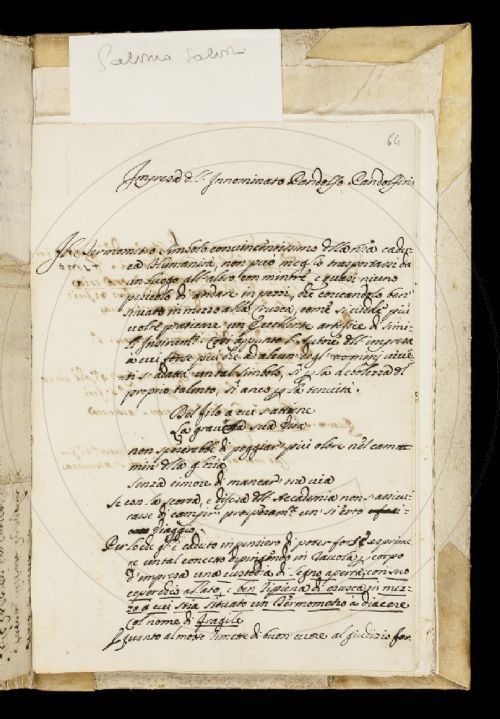 Salvino Salvi
66
Impresa dell' Innominato Pandolfo Pandolfini
Il Termometro simbolo convincentissimo della n'ra cadu-
ca Humanità, non può meglio trasportarsi da
un luogo all' altro con minore, e quasi niuno
pericolo di andare in pezzi, che coricandolo ben
situato in mezzo alla crusca, come si vede più
volte praticare un Eccellente artefice di simi-
li Instrumenti. Così appunto l'Autore dell' impresa
a cui forse piacere ad alcun degl' uomini vive
ti s'adatta un tal simbolo, sì per la debolezza del
proprio talento, sì anco per la tenuità
Del filo a cui s'attiene
La grave sua vita
non spererebbe di poggiar più oltre nel cam-
min della gloria
senza timore di mancar tra via
se con la scorta, e difesa dell' Accademia non s'assicu-
rasse di compir prosperam.te un sì erto
viaggio.
Per lo che gl' è caduto in pensiero di poter forse esprime-
re un tal concetto dipingendo in Tavola per corpo
d'impresa una custodia di legno aperta, con suo
coperchio allato, e ben ripiena di crusca in mez-
zo a cui stia situato un Termometro à diacere
Col nome di fragile
per quanto al motto rimette di buon cuore al giudizio